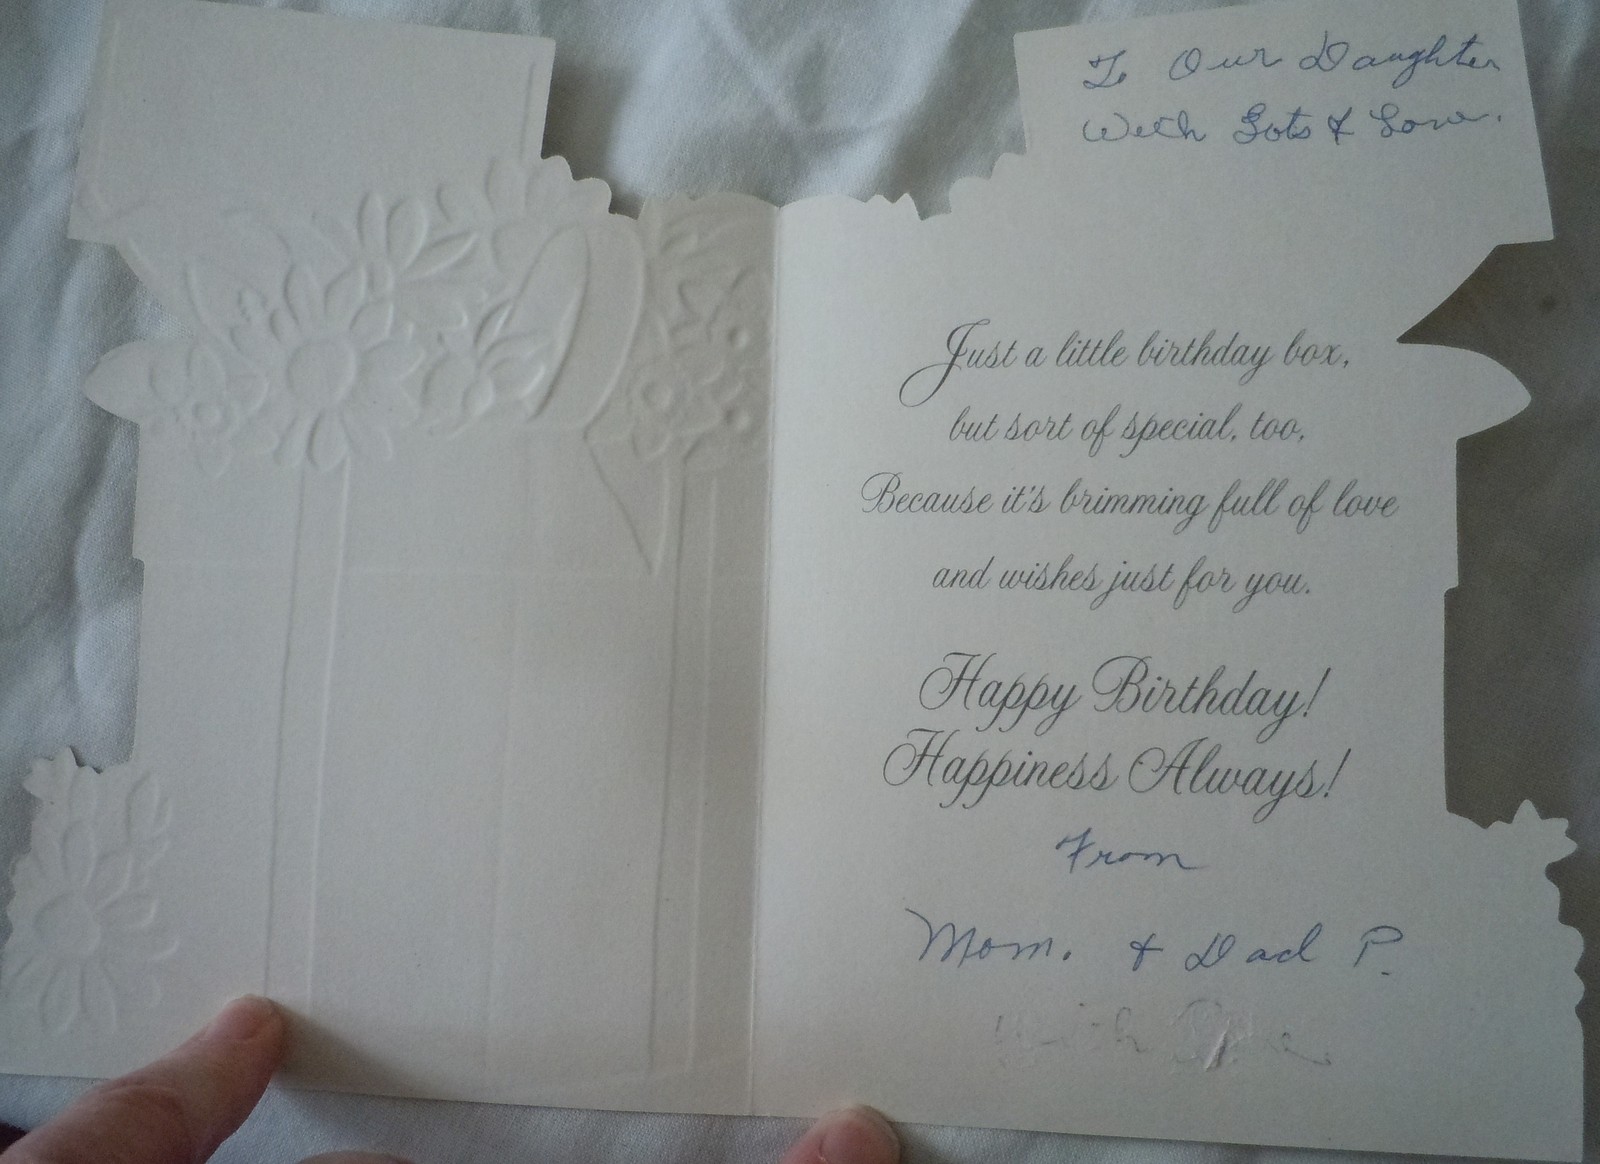 To Our Daughter
With Lots & Love.
Just a little birthday box,
but sort of special, too,
Because it's brimming full of love
and wishes just for you.
Happy Birthday!
Happiness Always!
From
Mom. & Dad P.
With